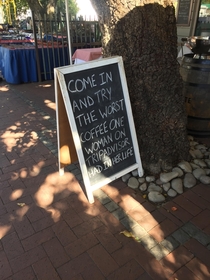 COME IN
AND TRY
THE WORST
COFFEE ONE
WOMAN ON
TRIPADVISOR
HAD IN HER LIFE